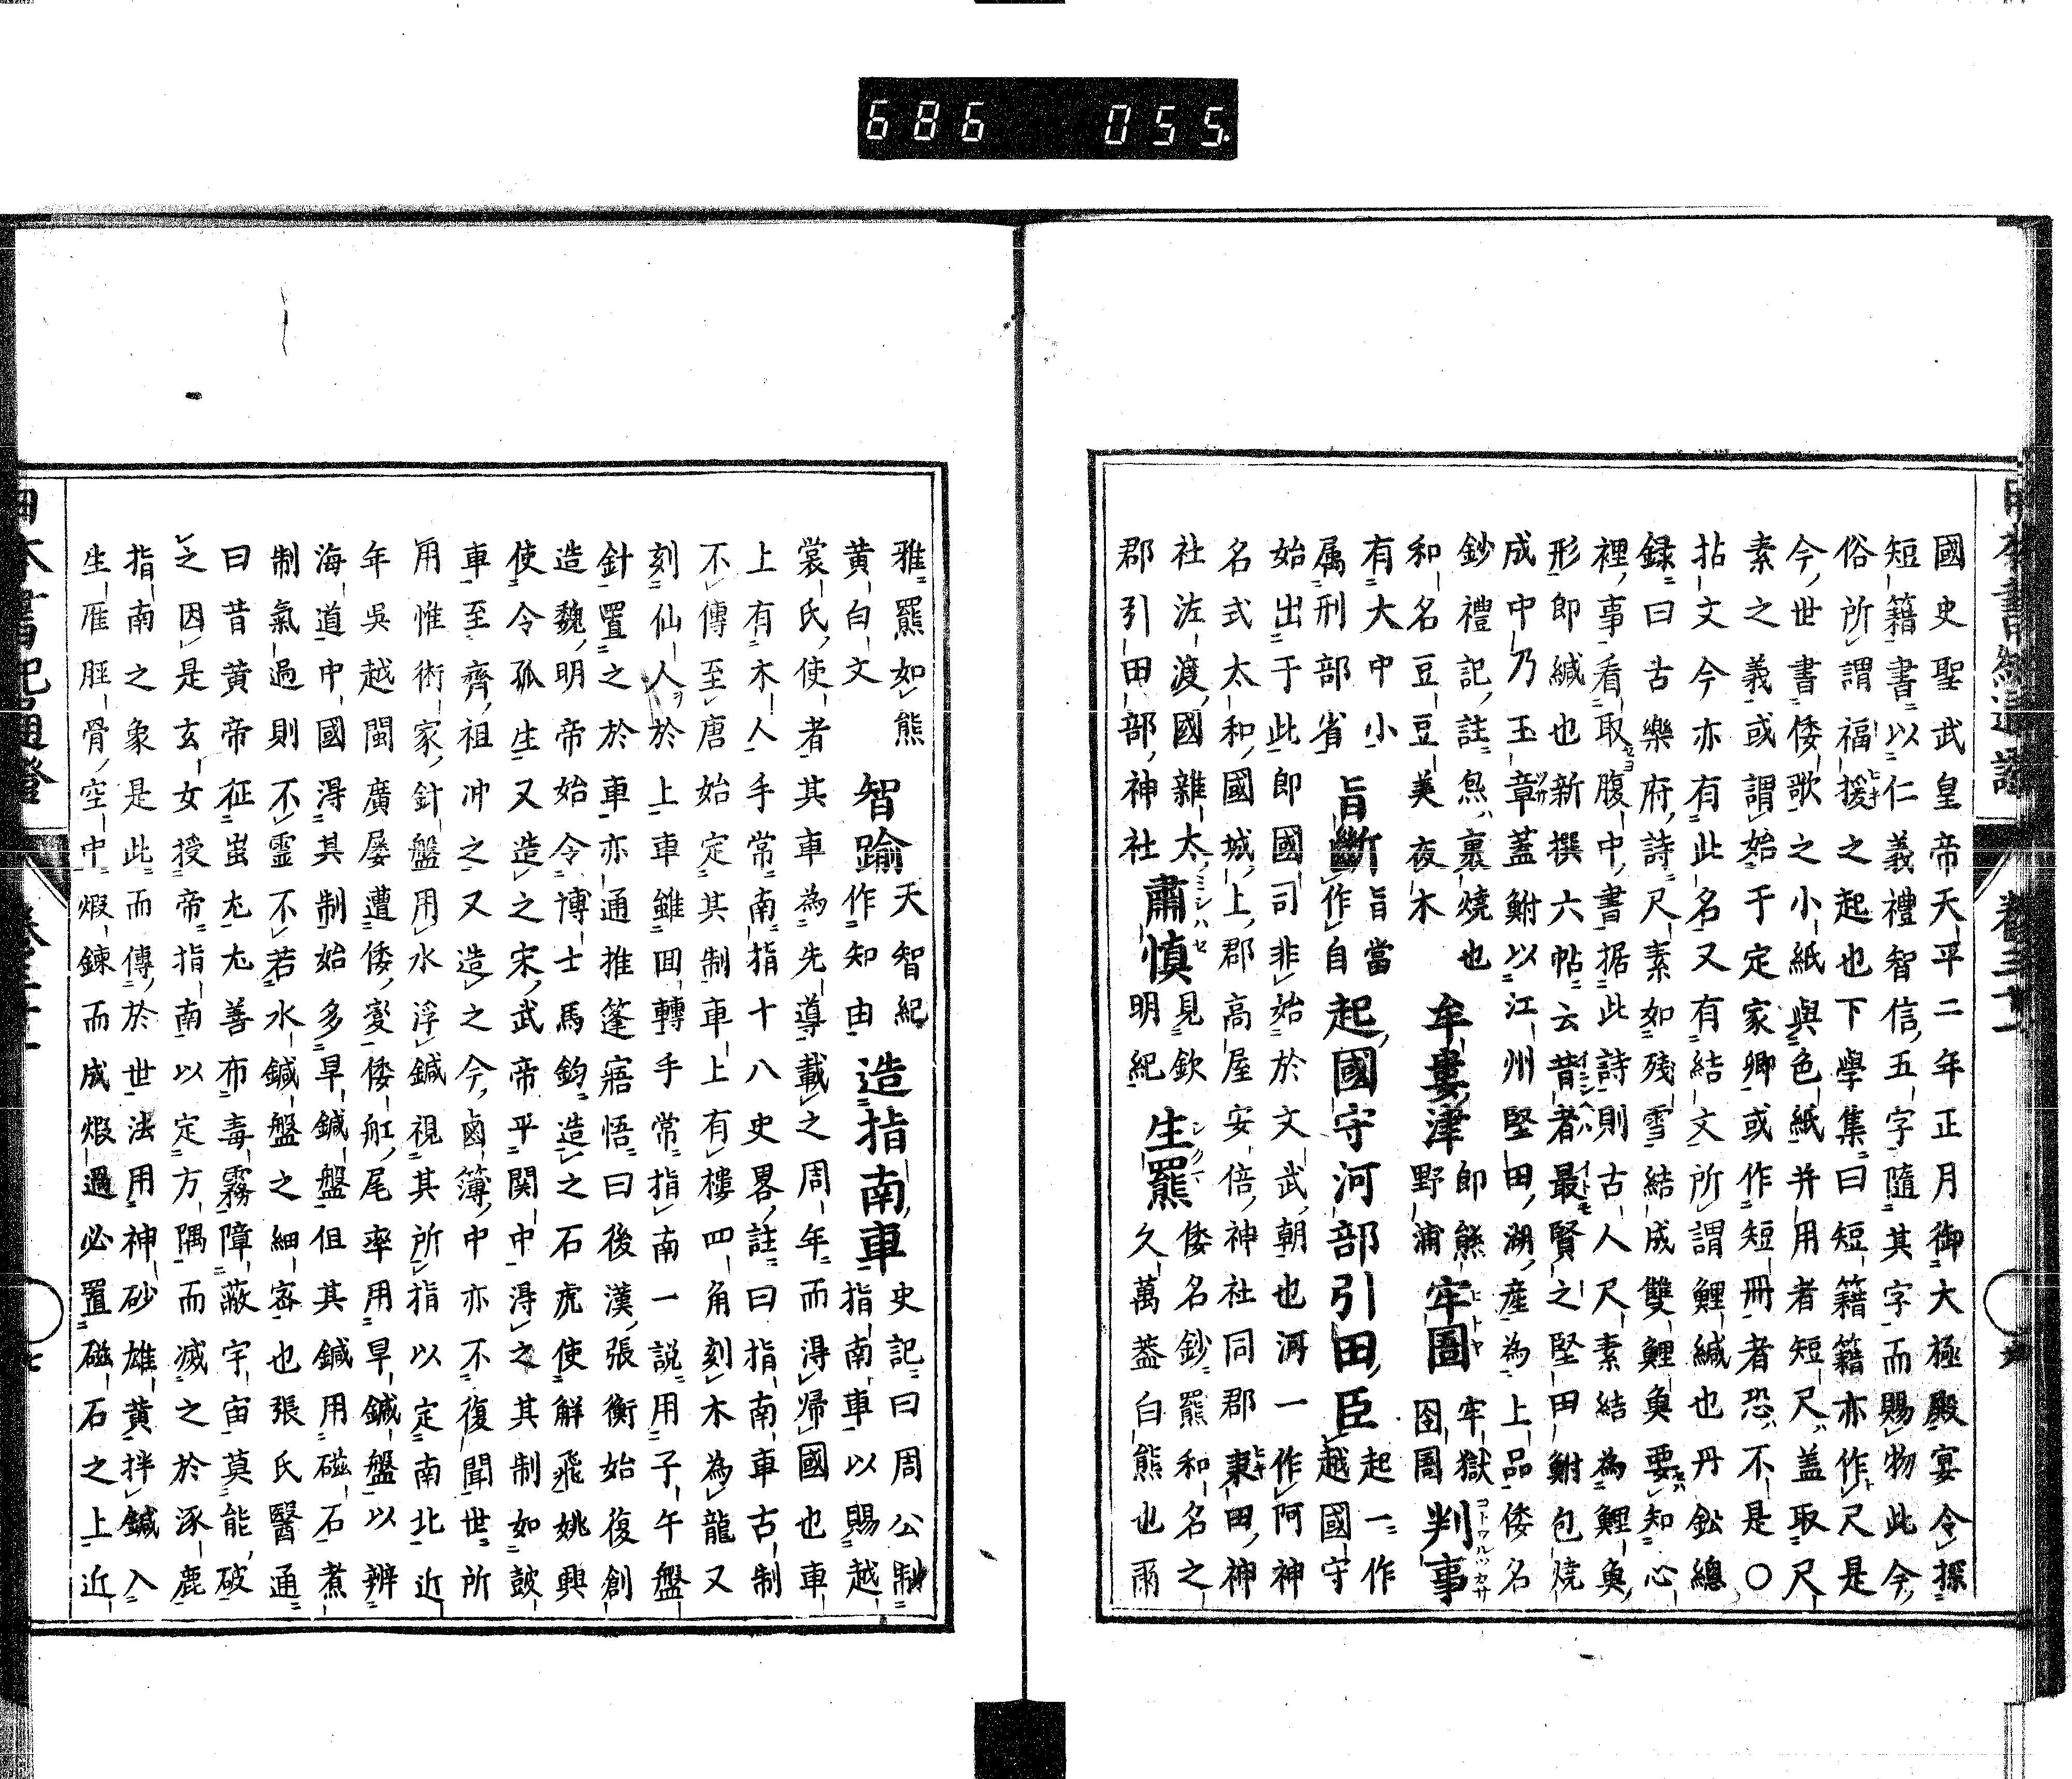 國史聖武皇帝天平二年正月御大極殿宴令探
短籍書以仁義禮智信五字隨其字而賜物此今
俗所謂福援之起也下學集曰短籍籍亦作尺是
今世書倭歌之小紙與色紙并用者短尺盖取尺
素之義或謂始于定家卿或作短冊者恐不是〇
拈文今亦有此名又有結文所謂鯉緘也丹鈆總
録曰古樂府詩尺素如残雪結成雙鯉魚要知心
裡事看取腹中書据此詩則古人尺素結為鯉魚
形即緘也新撰六帖云昔者最賢之堅田鮒包焼
成中乃玉章蓋鮒以江州堅田湖産為上品倭名
鈔禮記註炰裹焼也
和名豆豆美夜木
牟婁津 即熊野浦 牢圄 牢獄囹圄 判事
有大中小
属刑部省
旨斷 旨當作自 起國守河部引田臣 起一作越國守
始出于此即國司非始於文武朝也河一作阿神
名式太和國城上郡高屋安倍神社同郡曳田神
社佐渡國雜太郡引田部神社 肅慎 見欽明紀 生羆 倭名鈔羆和名之久萬蓋白熊也爾
雅羆如熊黄白文 智踰 天智紀作知由 造指南車 史記曰周公制指南車以賜越
裳氏使者其車為先導載之周年而得帰國也車
上有木人手常南指十八史畧註曰指南車古制
不傳至唐始定其制車上有樓四角刻木為龍又
刻仙人於上車雖回轉手常指南一説用子午盤
針置之於車亦通推篷寤悟曰後漢張衡始復創
造魏明帝始令博士馬鈞造之石虎使解飛姚興
使令孤生又造之宋武帝平関中得之其制如鼓
車至齊祖冲之又造之今鹵簿中亦不復聞世所
用惟術家針盤用水浮鍼視其所指以定南北近
年吳越閩廣屡遭倭変倭舡尾率用旱鍼盤以辨
海道中國得其制始多旱鍼盤但其鍼用磁石煮
制氣過則不霊不若水鍼盤之細密也張氏醫通
曰昔黄帝征蚩尤尤善布毒霧障蔽宇宙莫能破
之因是玄女授帝指南以定方隅而滅之於涿鹿
指南之象是此而傳於世法用神砂雄黄拌鍼入
生雁脛骨空中煅錬而成煅過必置磁石之上近
686 055